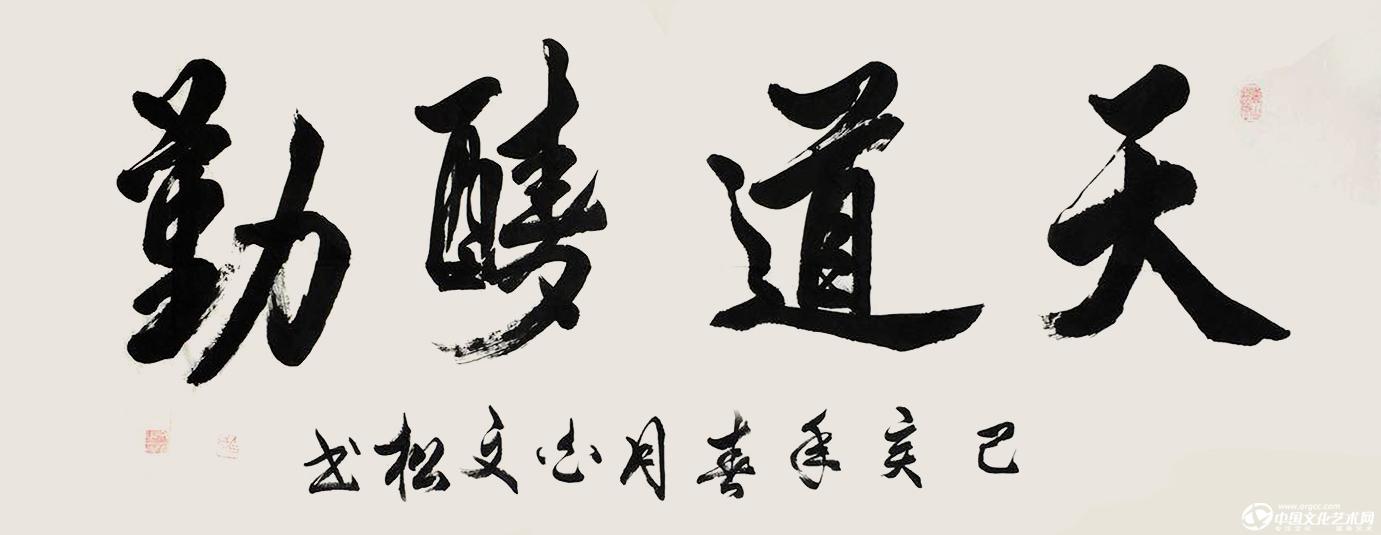 天道酬勤
己亥年春月白文松书
www.orgcc.com
中国文化艺术网